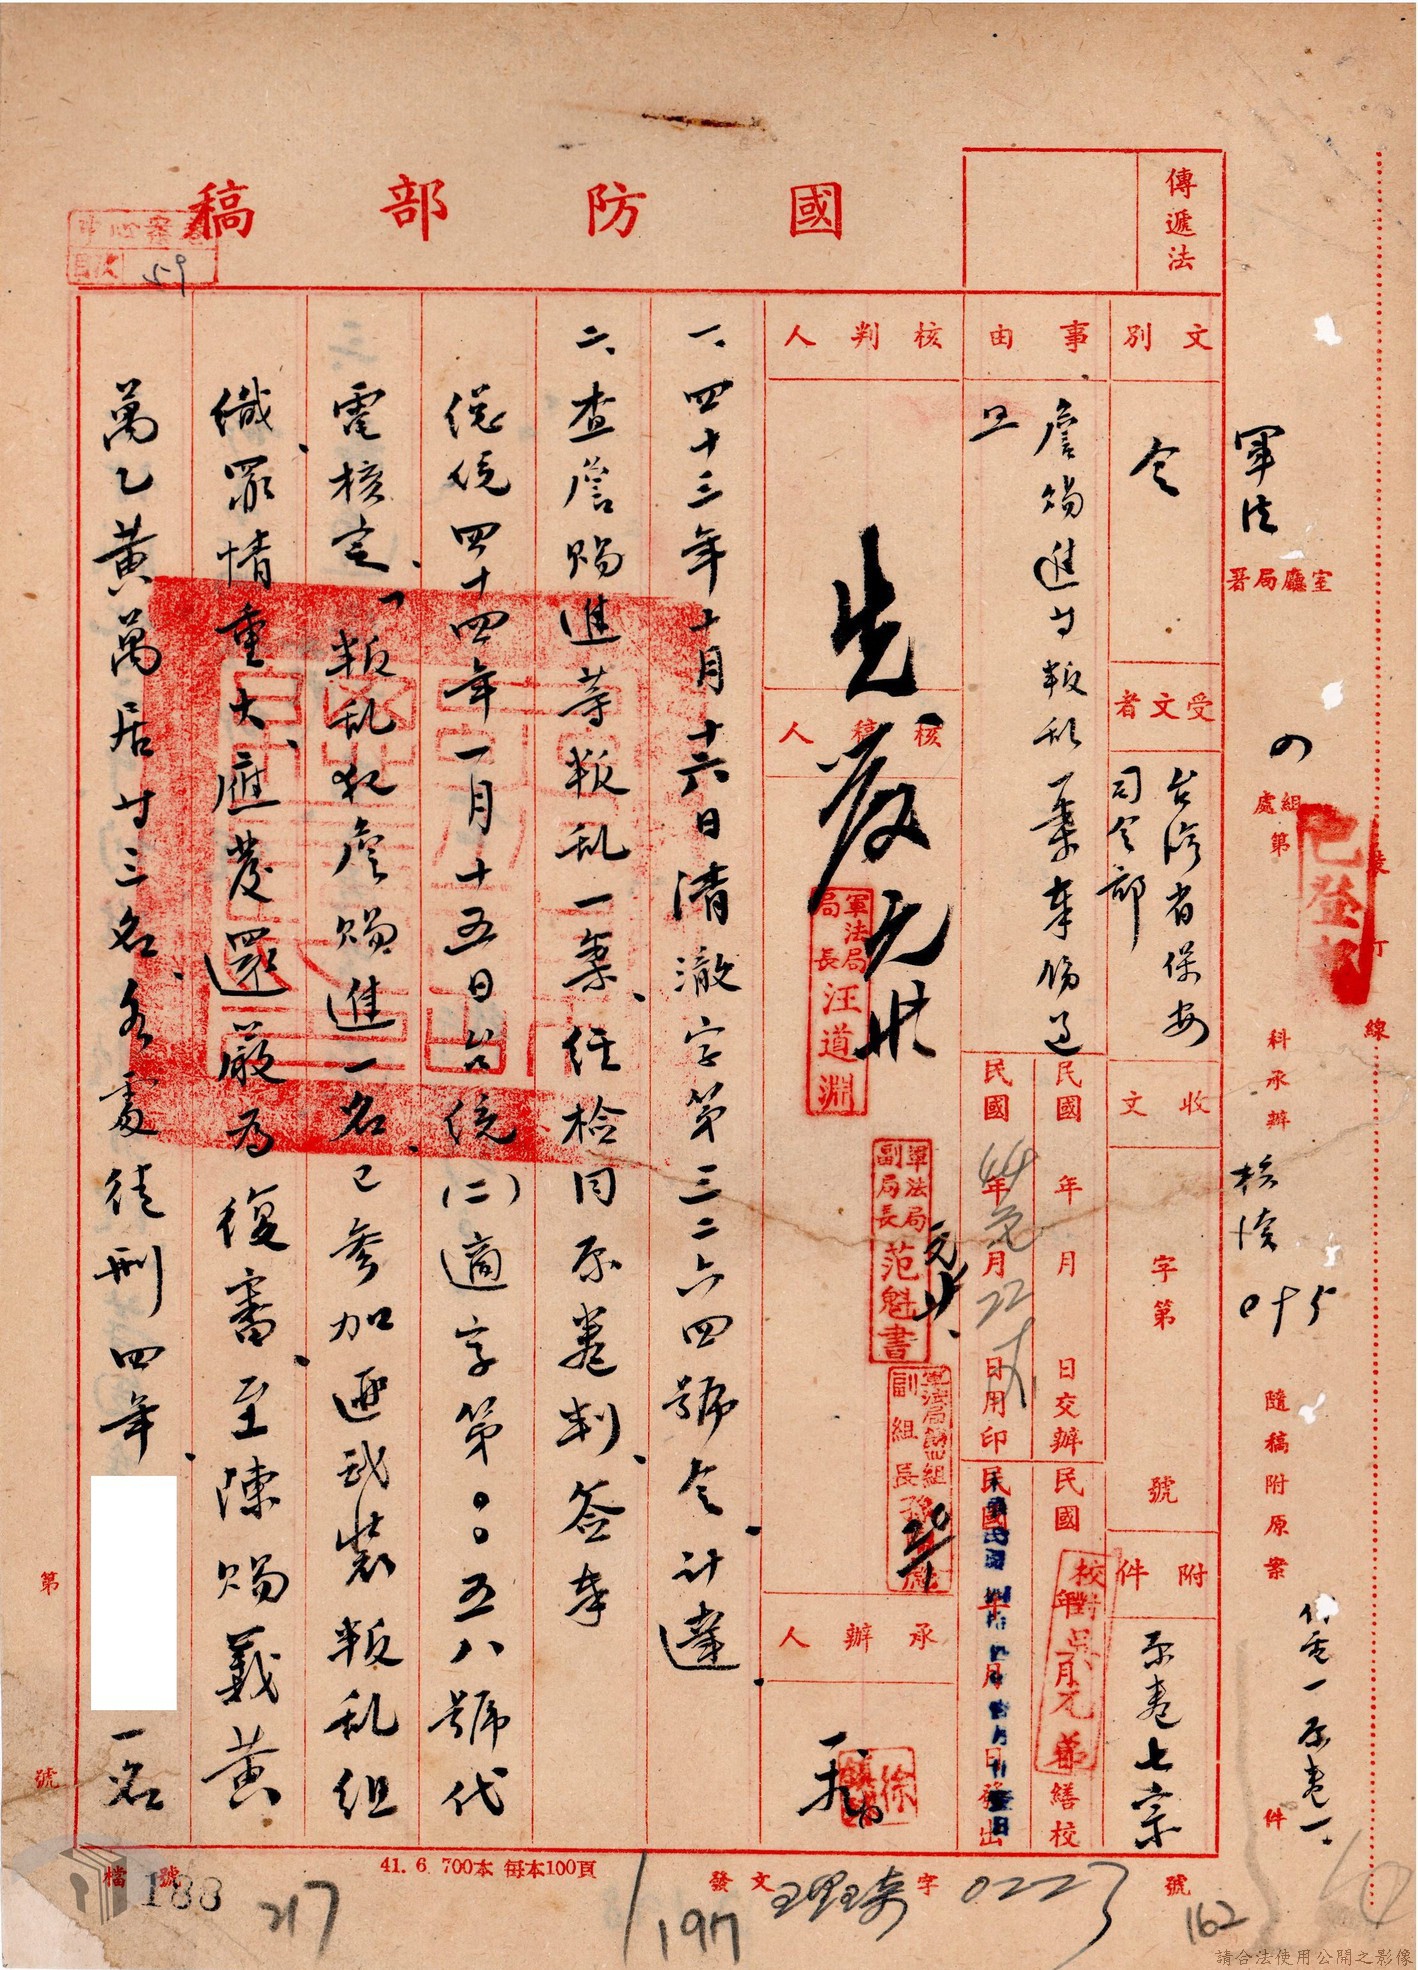 國防部稿
傳遞法
文別
令
受文者
台灣省保安
司令部
收文
字第
號
附件
原卷七宗
事由
詹賜進等叛乱一案奉
核判人
先發 元廿
軍法局
局長 汪道淵
核稿人
軍法局
副局長 范魁書
副組長
承辦人
民國 年 月 日交辦
民國 44年 元月 22日用印
民國 年 月 日繕校
民國 年 月 日發出
校對
一、四十三年十月十六日清澈字第三二六四號令、計達、
二、查詹賜進等叛乱一案、經檢同原卷判、簽奉
總統四十四年一月十五日台統(二)適字第〇〇五八號代
電核定、「叛乱犯詹賜進一名、已參加匪武裝叛乱組
織、罪情重大、應發還嚴為復審、至陳賜義黃
萬乙黃萬居等三名、各處徒刑四年、
一名
軍法
室廳局署
組處
第
科承辦
隨稿附原案
件
已登
裝訂線
第
號
檔號
188
217
197
41. 6. 700本 每本100頁
發文
字
0223
號
162
目次 59
請合法使用公開之影像